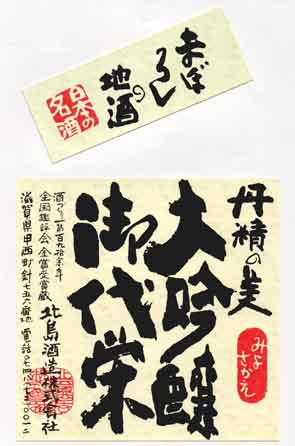 まぼ
ろし
の
地酒
日本の
名酒
丹精の美
みよ
さかえ
大吟醸
御代栄
酒づくり 百九拾余年
全国鑑評会 金賞受賞蔵
北島酒造株式会社
滋賀県甲西町針七五六番地 電話〇七四八七二〇〇一二